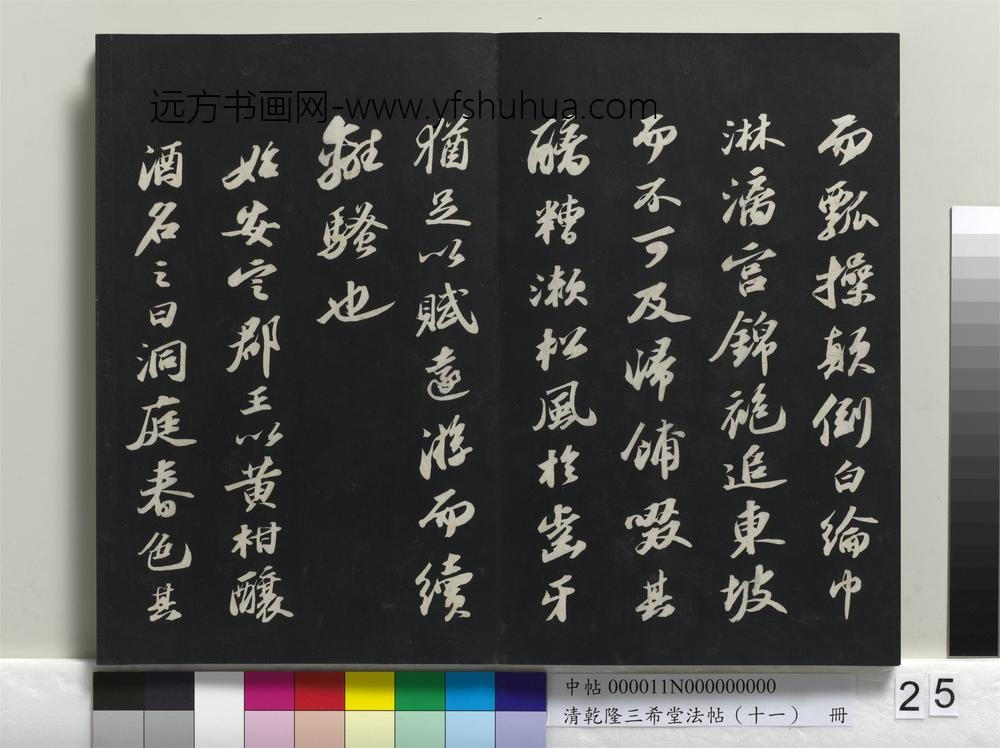 远方书画网-www.yfshuhua.com
而瓢操颠倒白綸巾
淋漓宫錦袍追東坡
而不可及歸餔啜其
醨糟漱松風於齒牙
猶足以賦遠游而續
離騷也
始安定郡王以黄柑釀
酒名之曰洞庭春色其
中帖 000011N000000000
清乾隆三希堂法帖（十一） 冊
25